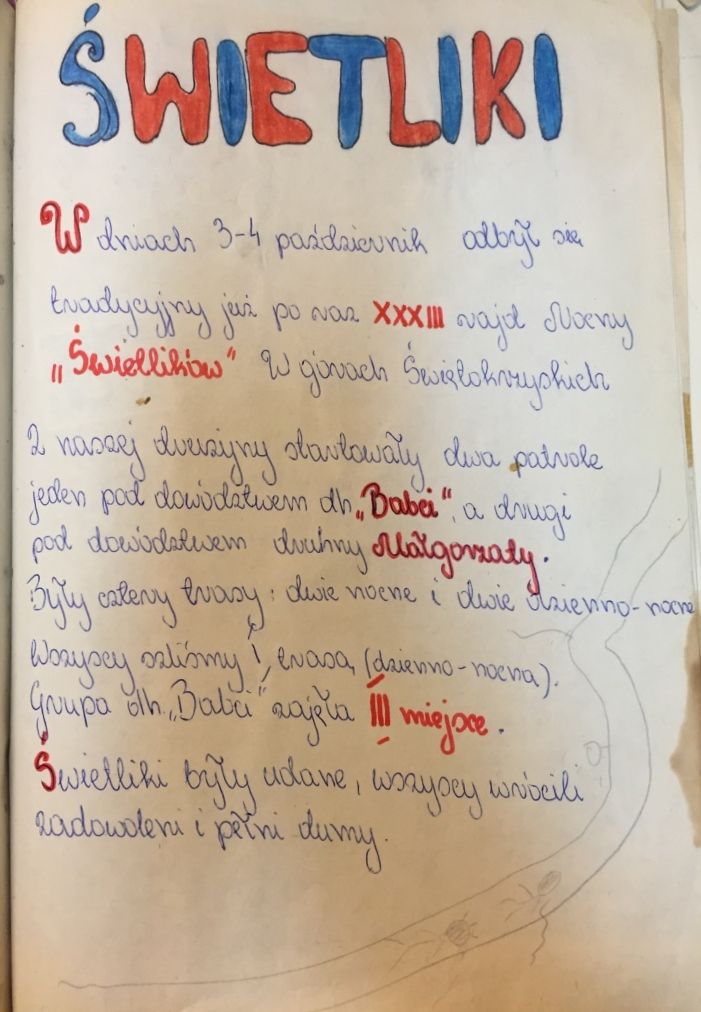 ŚWIETLIKI
W dniach 3-4 październik odbył się
tradycyjny już po raz XXXIII rajd Nocny
„Świetlików” W górach Świętokrzyskich
Z naszej drużyny startowały dwa patrole
jeden pod dowództwem dh „Babci”, a drugi
pod dowództwem druhny Małgorzaty.
Były cztery trasy: dwie nocne i dwie dzienno-nocne
Wszyscy szliśmy I trasą (dzienno-nocna).
Grupa dh. „Babci” zajęła III miejsce.
Świetliki były udane, wszyscy wrócili
zadowoleni i pełni dumy.